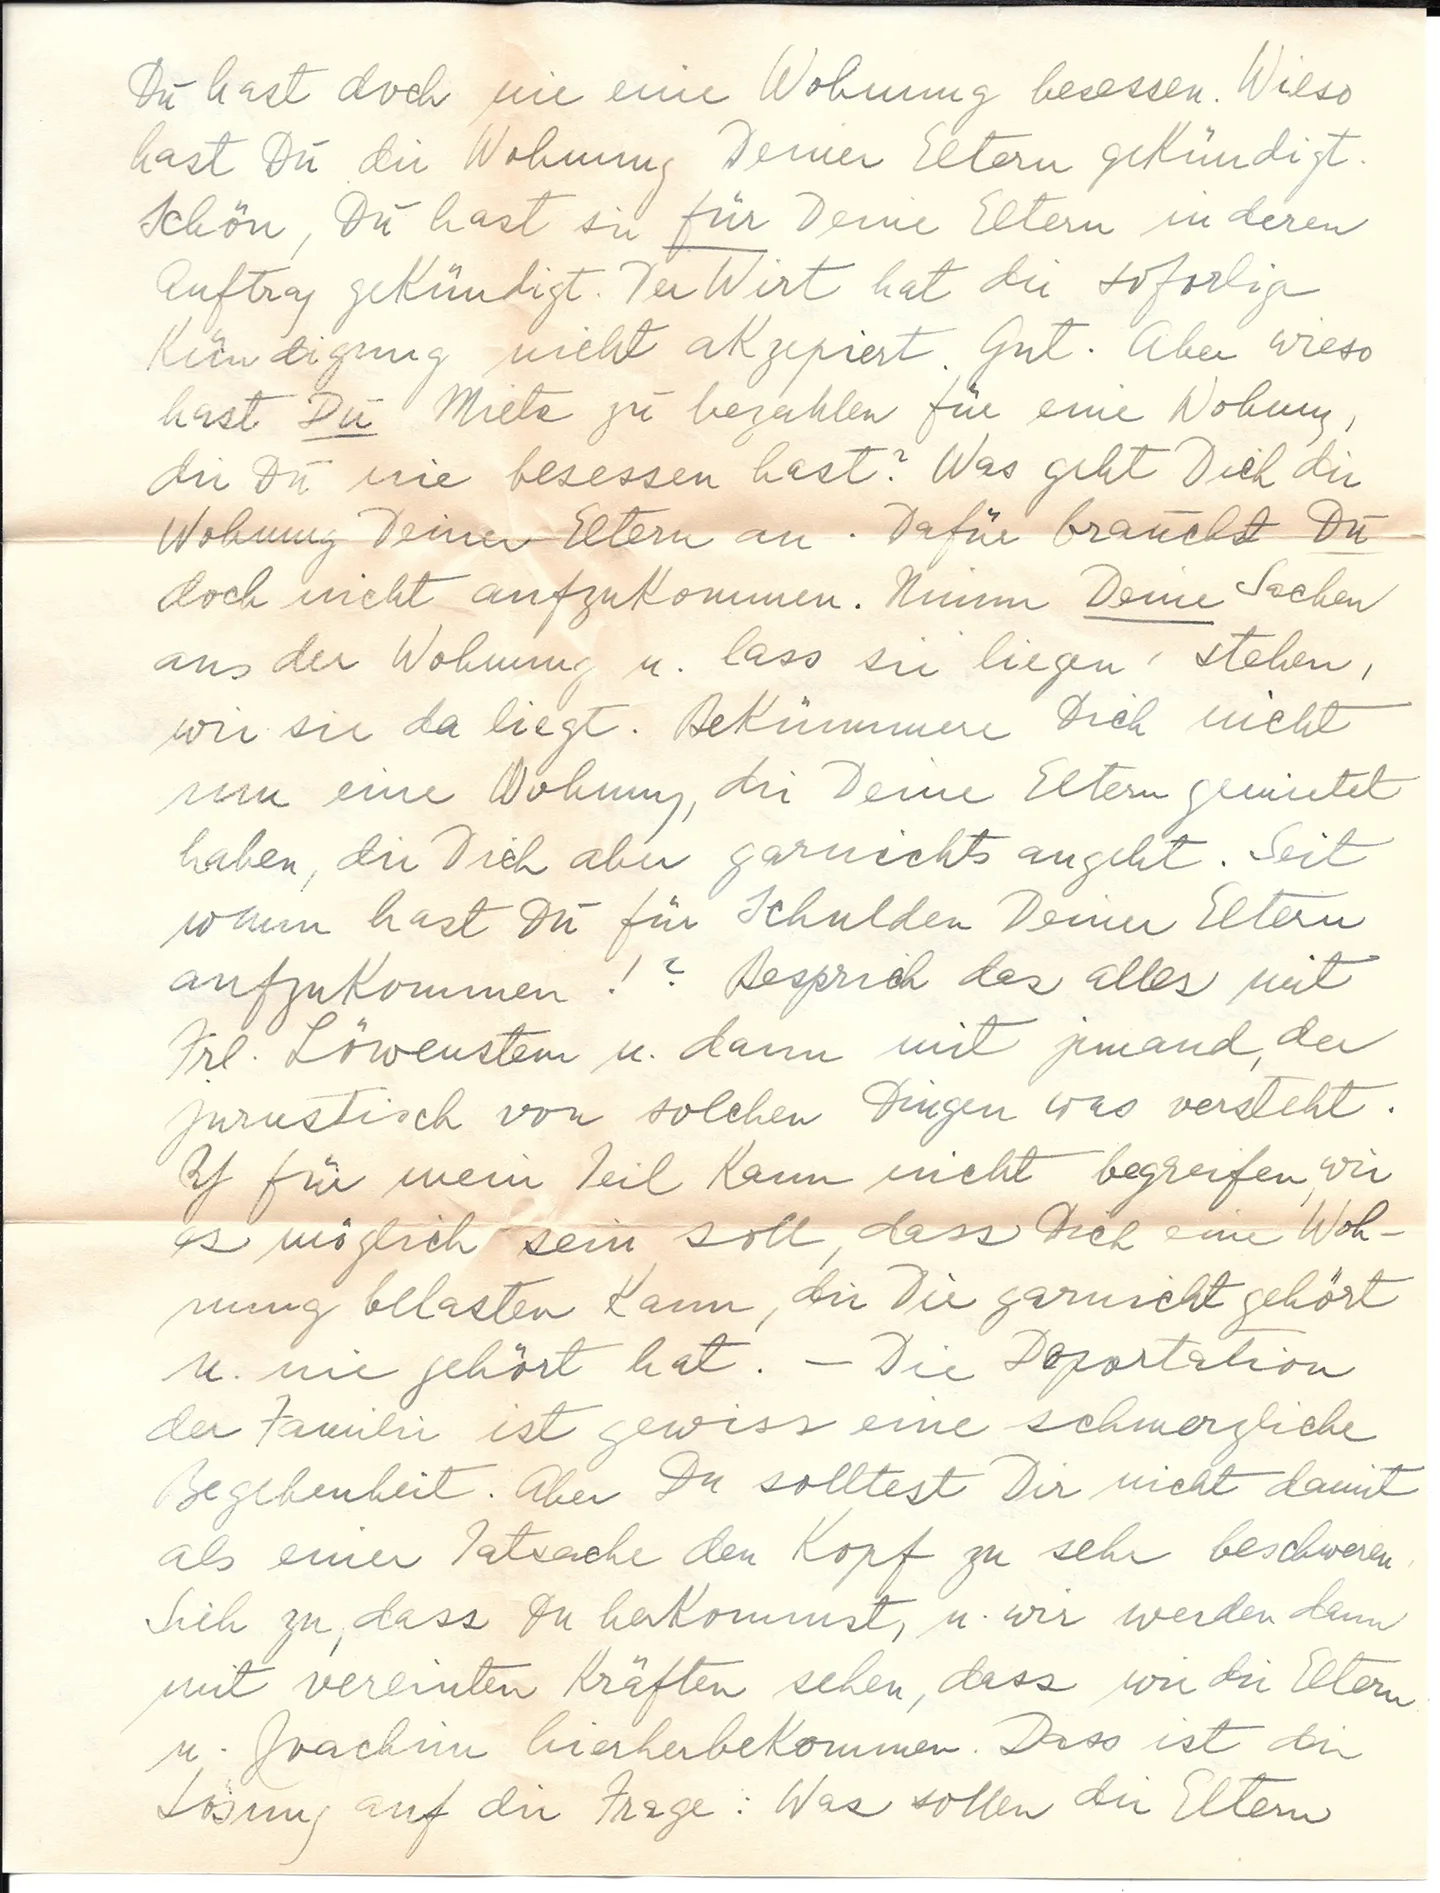 Du hast doch nie eine Wohnung besessen. Wieso
hast Du die Wohnung Deiner Eltern gekündigt.
Schön, Du hast sie für Deine Eltern in deren
Auftrag gekündigt. Der Wirt hat die sofortige
Kündigung nicht akzepiert. Gut. Aber wieso
hast Du Miete zu bezahlen für eine Wohnung,
die Du nie besessen hast? Was geht Dich die
Wohnung Deiner Eltern an. Dafür brauchst Du
doch nicht aufzukommen. Nimm Deine Sachen
aus der Wohnung u. lass sie liegen, stehen,
wie sie da liegt. Bekümmere Dich nicht
um eine Wohnung, die Deine Eltern gemietet
haben, die Dich aber garnichts angeht. Seit
wann hast Du für Schulden Deiner Eltern
aufzukommen!? Besprich das alles mit
Frl. Löwenstein u. dann mit jemand, der
juristisch von solchen Dingen was versteht.
Ich für mein Teil kann nicht begreifen, wie
es möglich sein soll, dass Dich eine Woh-
nung belasten kann, die Dir garnicht gehört
u. nie gehört hat. — Die Deportation
der Familie ist gewiss eine schmerzliche
Begebenheit. Aber Du solltest Dir nicht damit
als einer Tatsache den Kopf zu sehr beschweren.
Sieh zu, dass Du herkommst, u. wir werden dann
mit vereinten Kräften sehen, dass wir die Eltern
u. Joachim hierherbekommen. Dass ist die
Lösung auf die Frage: Was sollen die Eltern